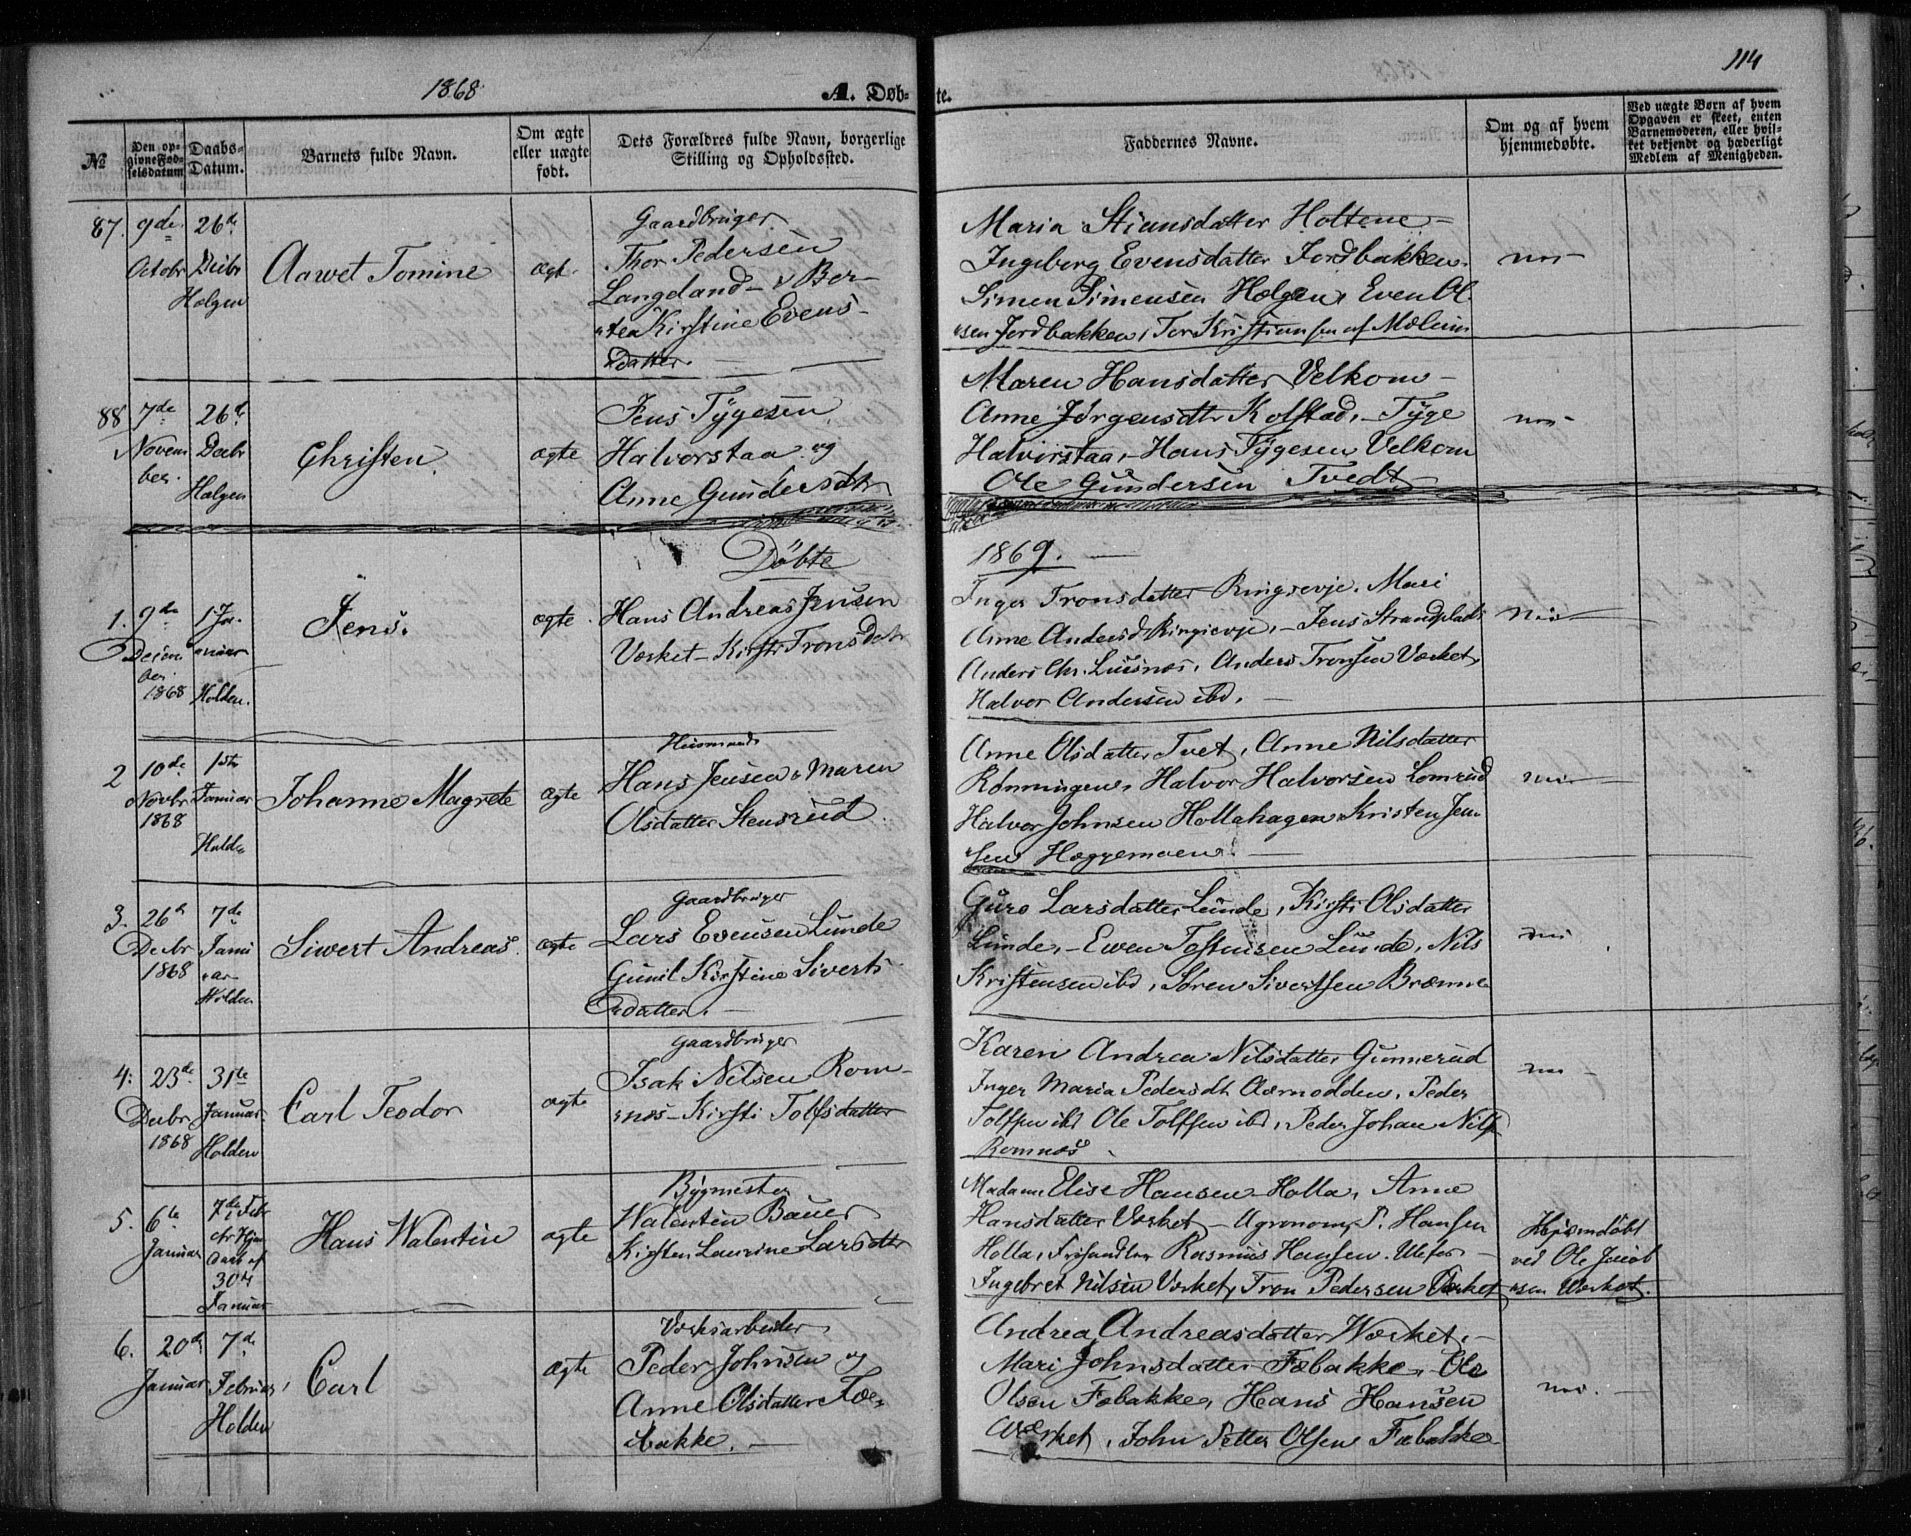 1868
114
A. Døbte.
№
Den opgivne Fødselsdatum
Daabs-Datum.
Barnets fulde Navn.
Om ægte eller uægte født.
Dets Forældres fulde Navn, borgerlige Stilling og Opholdssted.
Faddernes Navne.
Om og af hvem hjemmedøbte.
Ved uægte Børn af hvem Opgaven er skeet, enten Barnemoderen, eller hvilket bekjendt og hæderligt Medlem af Menigheden.
87. 9de Octobr
26de Decbr Helgen
Aawet Tomine
ægte
Gaardbruger
Thor Pedersen
Langeland - & Ber-
tea Kirstine Evens-
datter.
Maria Stiansdatter Holtene -
Ingeborg Evensdatter Jordbakken.
Simen Simensen Helgen, Even Ol-
sen Jordbakken, Tor Kristiansen af Mælum
88 7de Novem ber.
26de Decbr Helgen
Christen
ægte
Jens Tygesen
Halvorstaa og
Anne Gundersdtr
Maren Hansdatter Velkom -
Anne Jørgensdtr Kolstad, - Tyge
Halvorstaa, - Hans Tygesen Velkom
Ole Gundersen Tvedt
Döbte
1869. -
1. 9de Decem ber 1868
1 Januar Holden.
Jens.
ægte
Hans Andreas Jensen
Værket - Kirsti Tronsdatr
Inger Tronsdatter Ringsevje, Mari
Anne Andersd Ringsevje, - Jens Strandplads
Anders Chr. Lusnes, Anders Tronsen Værket,
Halvor Andersen ibd. -
2 10de Novbr 1868
1ste Januar Holden
Johanne Magrete
ægte
Huusmand
Hans Jensen & Maren
Olsdatter Stensrud.
Anne Olsdatter Tvet, Anne Nilsdatter
Rønningen, Halvor Halvorsen Lomrud
Halvor Johnsen Hollahagen Kristen Jen-
sen Heggemoen. -
3. 26de Decbr 1868
7de Januar Holden
Siwert Andreas.
ægte
Gaardbruger
Lars Evensen Lunde
Gunil Kirstine Siverts
datter. -
Guro Larsdatter Lunde, Kirsti Olsdatter
Lunde, - Even Tostensen Lunde, Nils
Kristensen ibd, Søren Sivertsen Brænne
4: 23de Decbr 1868
31te Januar. Holden
Carl Teodor
ægte
Gaardbruger
Isak Nilsen Rom-
nes - Kirsti Tolfsdatter
Karen Andrea Nilsdatter Gunnerud
Inger Maria Pedersdt Aarnodden, Peder
Tolfsen ibd Ole Tolffsen ibd, Peder Johan Nils
Romnes
5. 6te Januar
7de Febr Januar
Hans Walentin
ægte
Bygmester
Walentin Bauer
Kirsten Laurine Larsdtr
Madam Elise Hansen Holla, Anne
Hansdatter Værket - Agronom P. Hansen
Holla, Rasmus Hansen. Ulefos -
Ingebret Nilsen Værket, Tron Pedersen Værket
Hjemdöbt
ved Ole Jacob
sen Værket.
6. 20de Januar
7de Februar, Holden
Carl
ægte
Værksarbeider
Peder Johnsen og
Anne Olsdatter Fæ-
bakke. -
Andrea Andreasdatter Værket. -
Mari Johnsdatter Fæbakke, Ole
Olsen Fæbakke, Hans Hansen
Værket, John Petter Olsen Fæbakke